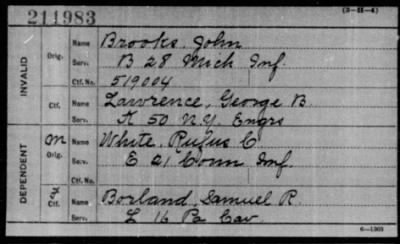 211983
(3-II-4)
INVALID
Orig.
Name Brooks, John
Serv. B 28 Mich Inf.
Ctf. No. 519004
Ctf.
Name Lawrence, George B.
Serv. K 50 N.Y. Engrs
DEPENDENT
m
Orig.
Name White, Rufus C.
Serv. E 21 Conn Inf.
Ctf. No.
Name Borland, Samuel R.
Serv. L 16 Pa Cav.
6-1303